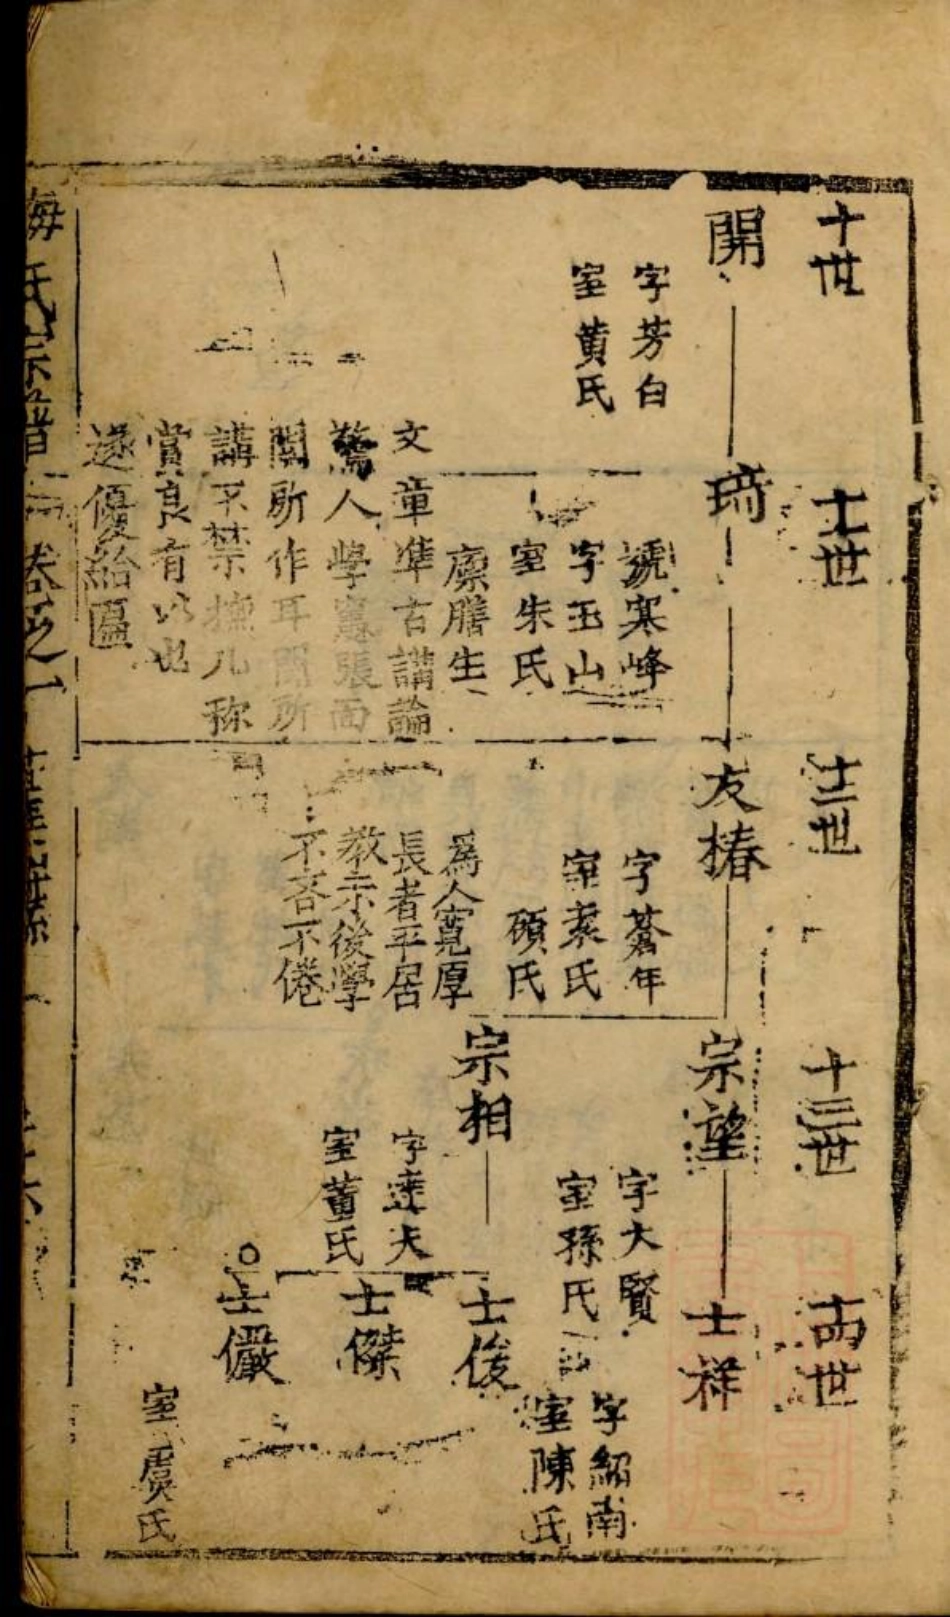 十世
開
字芳白
室黄氏
十一世
琦
號寒峰
字玉山
室朱氏
廪膳生
文章準古講論
驚人學憲張面
閲所作耳聞所
講不禁撫几称
賞良有以也
遂優給匾
十二世
友椿
字蒼年
室袁氏
碩氏
為人寛厚
長者平居
教示後學
不吝不倦
十三世
宗望
字大賢
室孫氏
宗相
字達夫
室董氏
十四世
士祥
字紹南
室陳氏
士俊
士傑
士儼
室虞氏
海氏宗譜
卷之一